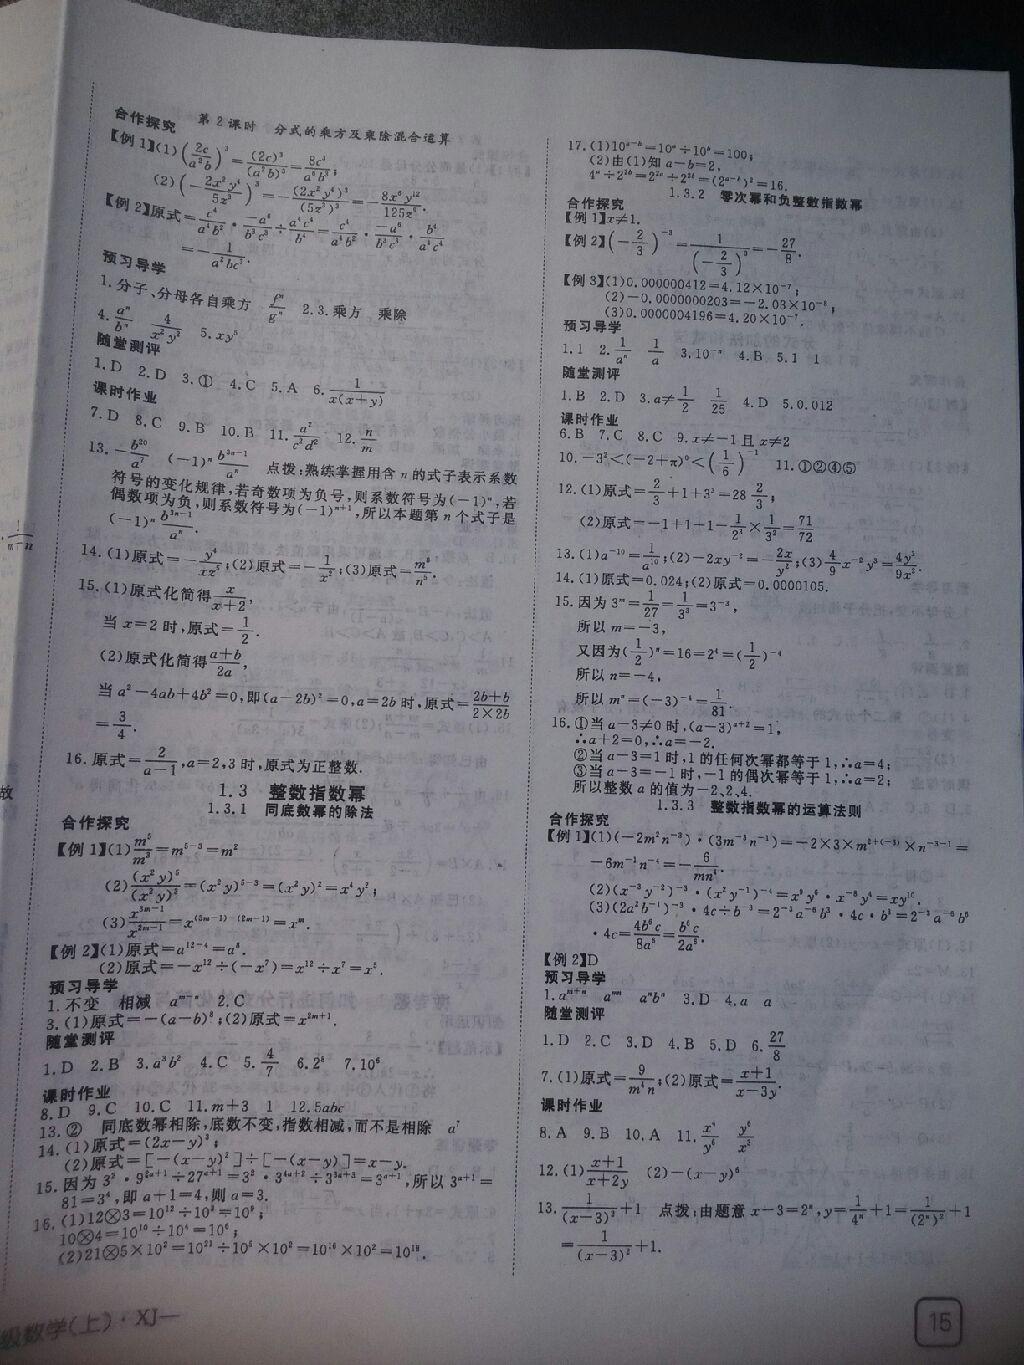 第2课时 分式的乘方及乘除混合运算
合作探究
【例1】(1)(2c/a²b)³=(2c)³/(a²b)³=8c³/a⁶b³;
(2)(-2x²y⁴/5z²)³=-(2x²y⁴)³/(5z²)³=-8x⁶y¹²/125z⁶.
预习导学
1.分子、分母各自乘方 fⁿ/gⁿ 2.3.乘方 乘除
4.aⁿ/bⁿ 4/x²y² 5.xy⁵
随堂测评
1.D 2.D 3.① 4.C 5.A 6.1/x(x+y)
课时作业
7.D 8.C 9.B 10.B 11.a²/c²d² 12.n/m
13.-b²⁰/a⁷ (-1)ⁿb³ⁿ⁻¹/aⁿ 点拨:熟练掌握用含n的式子表示系数
符号的变化规律,若奇数项为负号,则系数符号为(-1)ⁿ,若
偶数项为负,则系数符号为(-1)ⁿ⁺¹,所以本题第n个式子是
(-1)ⁿb³ⁿ⁻¹/aⁿ.
15.(1)原式化简得x/(x+2),
当x=2时,原式=1/2.
(2)原式化简得(a+b)/2a,
当a²-4ab+4b²=0,即(a-2b)²=0,a=2b时,原式=(2b+b)/(2×2b)
=3/4.
16.原式=2/(a-1),a=2,3时,原式为正整数.
1.3 整数指数幂
1.3.1 同底数幂的除法
合作探究
【例1】(1)m⁵/m³=m⁵⁻³=m²
(2)(x²y)⁵/(x²y)³=(x²y)⁵⁻³=(x²y)²=x⁴y²;
(3)x³ᵐ⁻¹/x²ᵐ⁻¹=x⁽³ᵐ⁻¹⁾⁻⁽²ᵐ⁻¹⁾=xᵐ.
【例2】(1)原式=a¹²⁻⁴=a⁸.
(2)原式=-x¹²÷(-x⁷)=x¹²÷x⁷=x⁵.
预习导学
1.不变 相减 aᵐ⁻ⁿ 2.C
3.(1)原式=-(a-b)⁸;(2)原式=x²ᵐ⁺¹.
随堂测评
1.D 2.B 3.a³b² 4.C 5.4/7 6.2⁸ 7.10⁶
课时作业
8.D 9.C 10.C 11.m+3 1 12.5abc
13.② 同底数幂相除,底数不变,指数相减,而不是相除 a⁷
14.(1)原式=(2x-y)³;
(2)原式=[-(x-y)²]÷[-(x-y)]=x-y.
15.因为3²·9²ᵃ⁺¹÷27ᵃ⁺¹=3²·3⁴ᵃ⁺²÷3³ᵃ⁺³=3ᵃ⁺¹,所以3ᵃ⁺¹=
81=3⁴,即a+1=4,则a=3.
16.(1)12⊗3=10¹²÷10³=10⁹;
10⊗4=10¹⁰÷10⁴=10⁶;
(2)21⊗5×10²=10²¹÷10⁵×10²=10¹⁶×10²=10¹⁸.
级数学(上)·XJ—
17.(1)10ᵃ⁻ᵇ=10ᵃ÷10ᵇ=100;
(2)由(1)知a-b=2,
4ᵃ÷2²ᵇ=2²ᵃ÷2²ᵇ=(2ᵃ⁻ᵇ)²=16.
1.3.2 零次幂和负整数指数幂
合作探究
【例1】x≠1.
【例2】(-2/3)⁻³=1/(-2/3)³=-27/8.
【例3】(1)0.000000412=4.12×10⁻⁷;
(2)-0.0000000203=-2.03×10⁻⁸;
(3)0.0000004196=4.20×10⁻⁷.
预习导学
1.1 2.1/aⁿ 1/a 3.10⁻ⁿ 4.B 5.1 1
随堂测评
1.B 2.D 3.a≠1/2 1/25 4.D 5.0.012
课时作业
6.B 7.C 8.C 9.x≠-1且x≠2
10.-3²<(-2+π)⁰<(1/6)⁻¹ 11.①②④⑤
12.(1)原式=2/3+1+3³=28 2/3;
(2)原式=-1+1+1-1/2³×1/3²=71/72
13.(1)a⁻¹⁰=1/a¹⁰;(2)-2xy⁻²=-2x/y²;(3)4/9x⁻²y³=4y³/9x².
14.(1)原式=0.024;(2)原式=0.0000105.
15.因为3ᵐ=1/27=1/3³=3⁻³,
所以m=-3,
又因为(1/2)ⁿ=16=2⁴=(1/2)⁻⁴
所以n=-4,
所以mⁿ=(-3)⁻⁴=1/81.
16.①当a-3≠0时,(a-3)ᵃ⁺²=1,
∴a+2=0,∴a=-2.
②当a-3=1时,1的任何次幂都等于1,∴a=4;
③当a-3=-1时,-1的偶次幂等于1,∴a=2;
所以整数a的值为-2、2、4.
1.3.3 整数指数幂的运算法则
合作探究
【例1】(1)(-2m²n⁻³)·(3m⁻³n⁻¹)=-2×3×m²⁺⁽⁻³⁾×n⁻³⁻¹=
-6m⁻¹n⁻⁴=-6/mn⁴.
(2)(x⁻³y⁻²)⁻³·(x²y⁻¹)⁻⁴=x⁹y⁶·x⁻⁸y⁴=xy¹⁰.
·4c=4b⁶c/8a⁶=b⁶c/2a⁶.
【例2】D
预习导学
1.aᵐ⁺ⁿ aᵐⁿ aⁿbⁿ 3.D 4.a a
随堂测评
1.D 2.C 3.D 4.B 5.D 6.27/8
7.(1)原式=9/m⁴n;(2)原式=(x+1)/(x-3y).
课时作业
8.A 9.B 10.A 11.x⁴/y⁶ y⁶/x³
12.(1)(x+1)/(x+2y) (2)-(x-y)⁶
13.1/(x-3)²+1 点拨:由题意x-3=2ⁿ,y=1/4ⁿ+1=1/(2ⁿ)²+1
=1/(x-3)²+1.
15